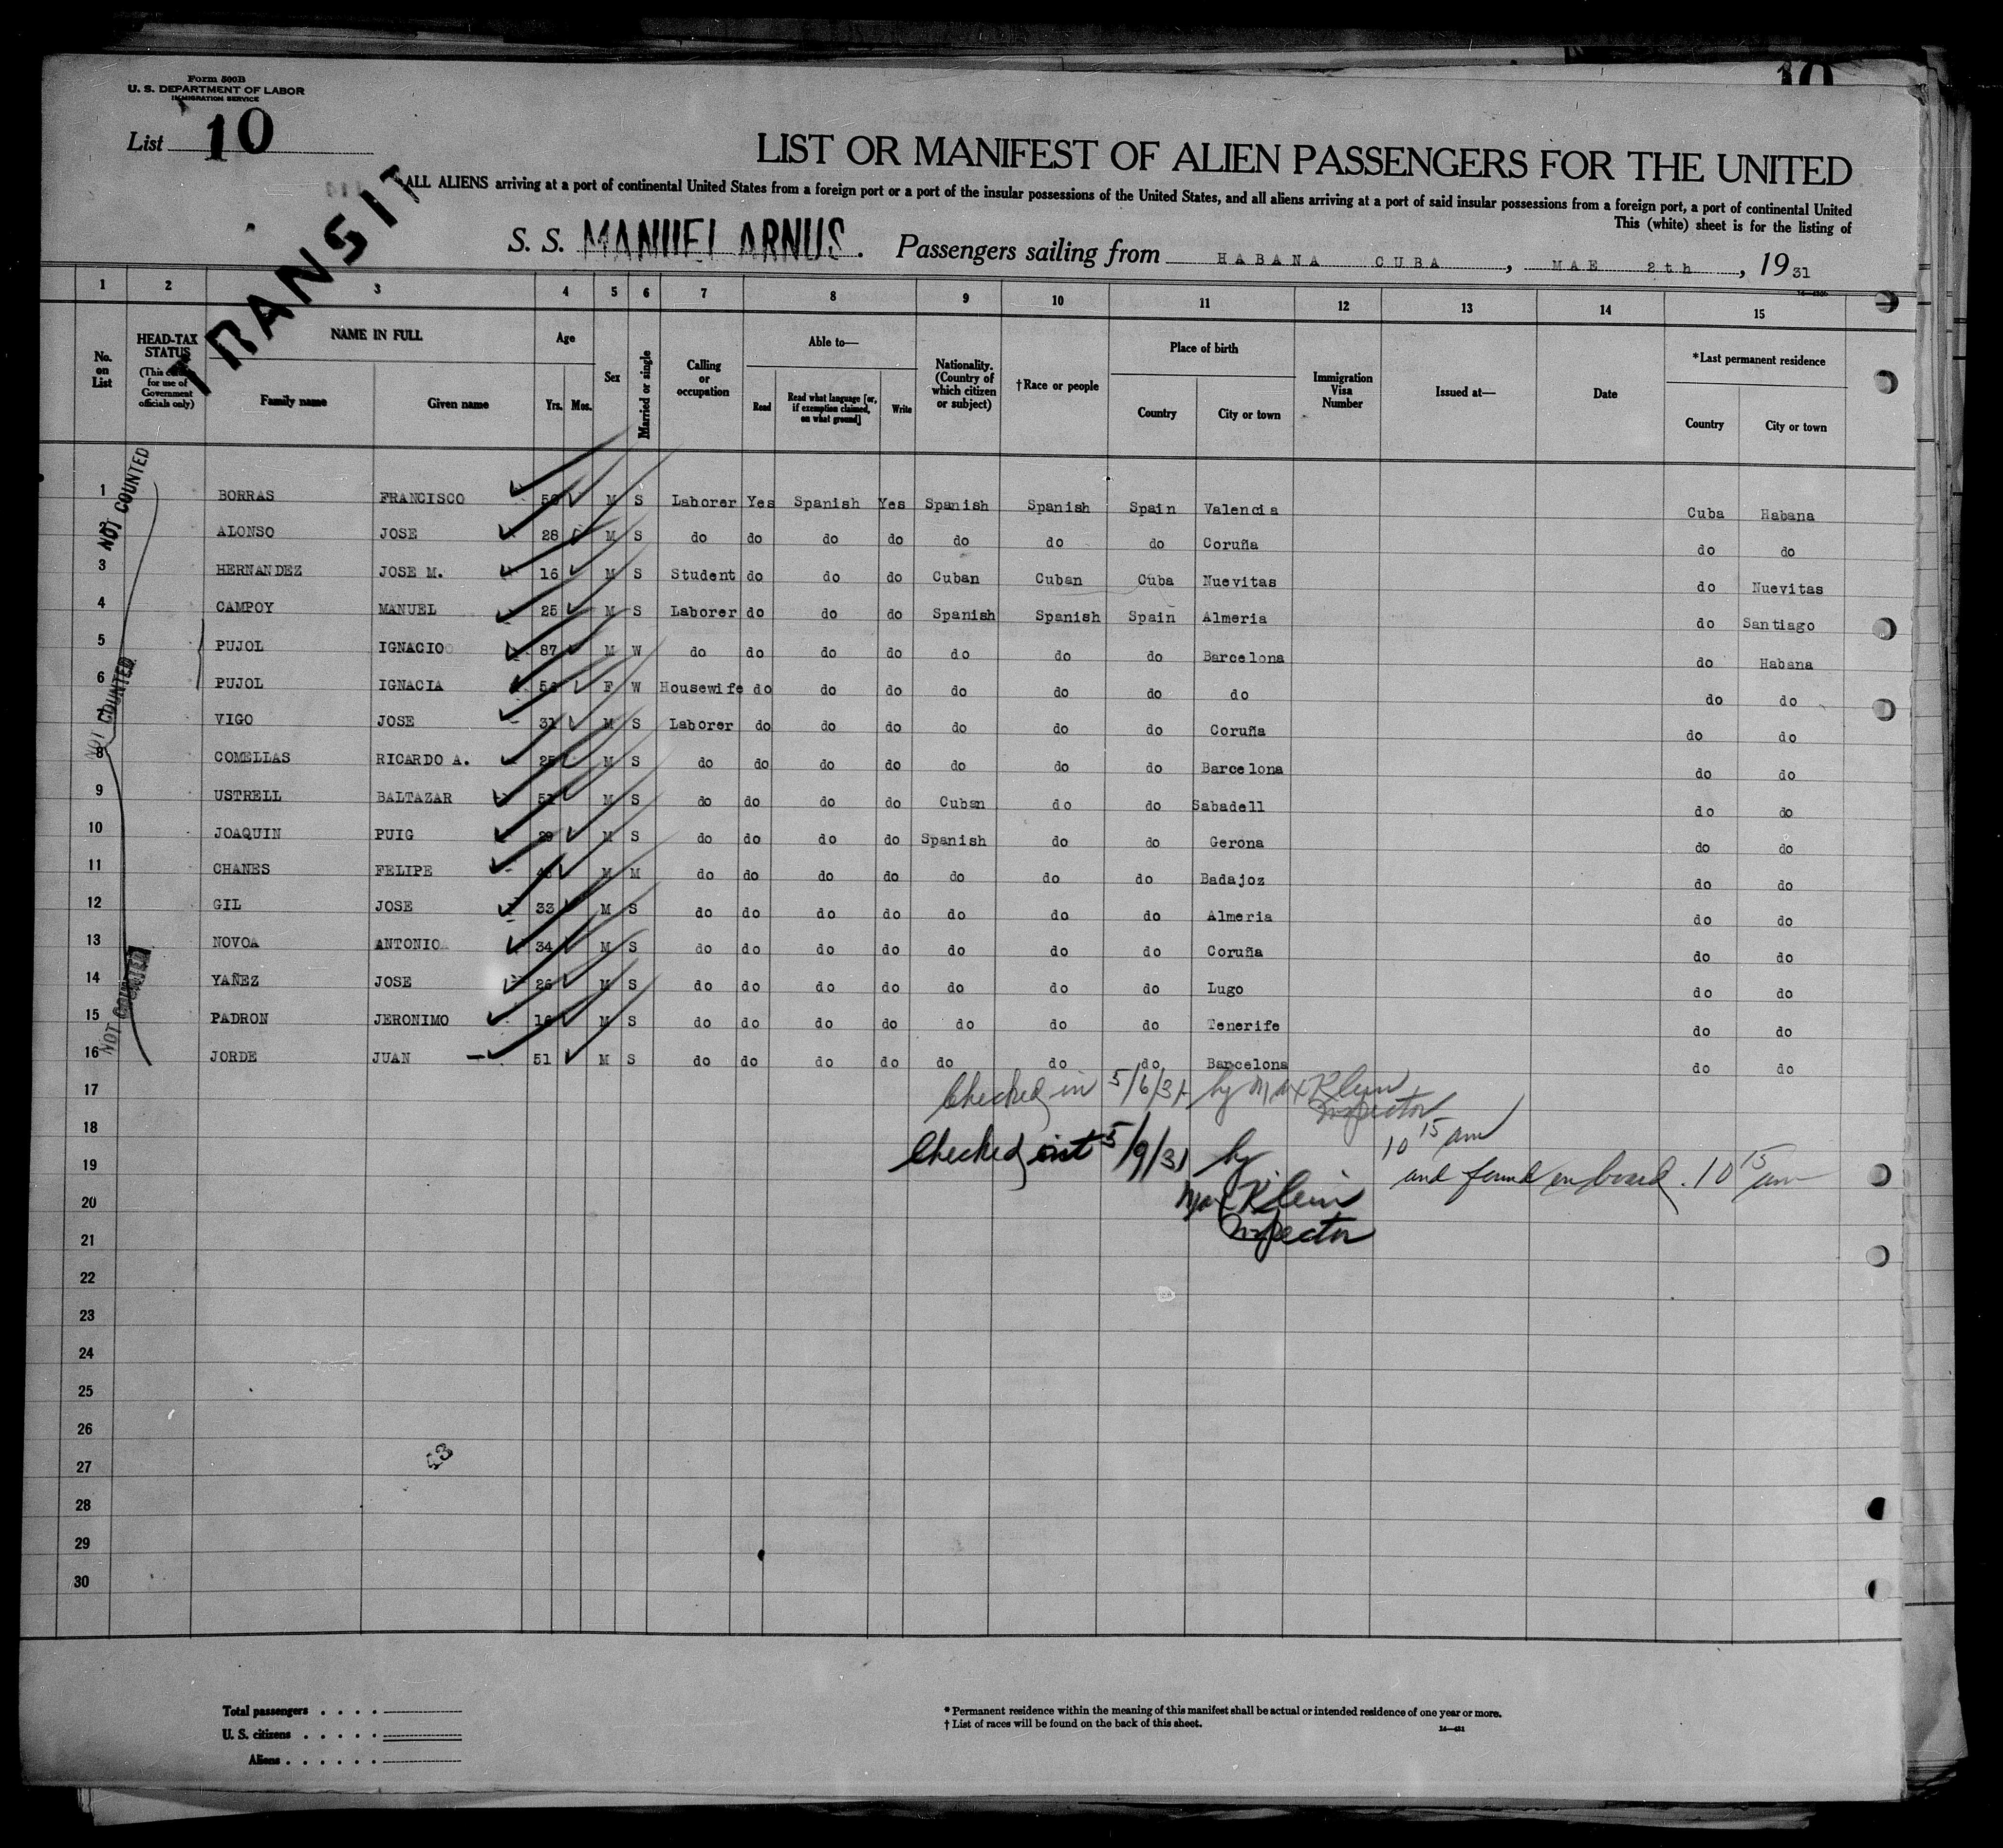 Form 500B
U. S. DEPARTMENT OF LABOR
IMMIGRATION SERVICE
List 10
TRANSIT
LIST OR MANIFEST OF ALIEN PASSENGERS FOR THE UNITED
ALL ALIENS arriving at a port of continental United States from a foreign port or a port of the insular possessions of the United States, and all aliens arriving at a port of said insular possessions from a foreign port, a port of continental United
This (white) sheet is for the listing of
S. S. MANUEL ARNUS. Passengers sailing from HABANA CUBA , MAE 2th , 19 31
1 2 3 4 5 6 7 8 9 10 11 12 13 14 15
No. on List
HEAD-TAX STATUS
(This column for use of Government officials only)
NAME IN FULL
Family name Given name
Age
Yrs. Mos.
Sex
Married or single
Calling or occupation
Able to—
Read Read what language [or, if exemption claimed, on what ground] Write
Nationality. (Country of which citizen or subject)
†Race or people
Place of birth
Country City or town
Immigration Visa Number
Issued at—
Date
*Last permanent residence
Country City or town
NOT COUNTED
NOT COUNTED
NOT COUNTED
1 BORRAS FRANCISCO M S Laborer Yes Spanish Yes Spanish Spanish Spain Valencia Cuba Habana
2 ALONSO JOSE 28 M S do do do do do do do Coruña do do
3 HERNANDEZ JOSE M. 16 M S Student do do do Cuban Cuban Cuba Nuevitas do Nuevitas
4 CAMPOY MANUEL 25 M S Laborer do do do Spanish Spanish Spain Almeria do Santiago
5 PUJOL IGNACIO 87 M W do do do do do do do Barcelona do Habana
6 PUJOL IGNACIA F W Housewife do do do do do do do do do
7 VIGO JOSE 31 M S Laborer do do do do do do Coruña do do
8 COMELLAS RICARDO A. M S do do do do do do do Barcelona do do
9 USTRELL BALTAZAR 51 M S do do do do Cuban do do Sabadell do do
10 JOAQUIN PUIG M S do do do do Spanish do do Gerona do do
11 CHANES FELIPE M M do do do do do do do Badajoz do do
12 GIL JOSE 33 M S do do do do do do do Almeria do do
13 NOVOA ANTONIO 34 M S do do do do do do do Coruña do do
14 YAÑEZ JOSE 26 M S do do do do do do do Lugo do do
15 PADRON JERONIMO M S do do do do do do do Tenerife do do
16 JORDE JUAN 51 M S do do do do do do do Barcelona do do
17
Checked in 5/6/31 by Max Klein
Inspector
10 15 am
18
Checked out 5/9/31 by
Max Klein
Inspector
and found on board. 10 15 am
19
20
21
22
23
24
25
26
27
28
29
30
43
Total passengers . . . .
U. S. citizens . . . . .
Aliens . . . . . .
* Permanent residence within the meaning of this manifest shall be actual or intended residence of one year or more.
† List of races will be found on the back of this sheet.